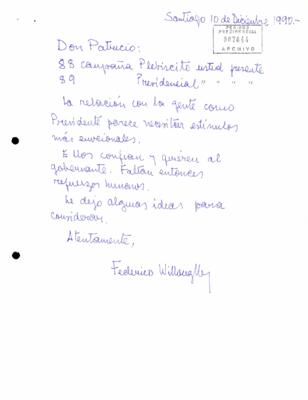 Santiago 10 de Diciembre 1990.-
PERIODO
PRESIDENCIAL
007044
ARCHIVO
Don Patricio:
88 campaña Plebiscito usted presente
89 Presidencial " " "
La relación con la gente como
Presidente parece necesitar estímulos
más emocionales.
Ellos confían y quieren al
gobernante. Faltan entonces
refuerzos humanos.
Le dejo algunas ideas para
considerar.
Atentamente,
Federico Willoughby